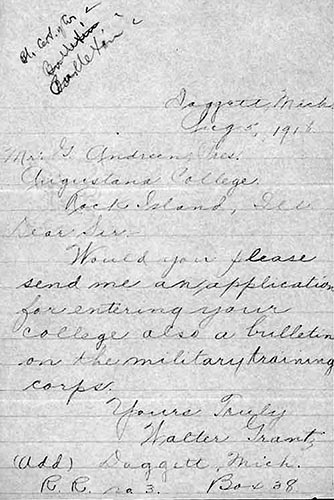 Bulletin
Bulletin
Daggett, Mich.
Aug 5, 1918
Mr. G. Andreen, Pres.
Augustana College.
Rock Island, Ill
Dear Sir:
Would you please
send me an application
for entering your
college also a bulletin
on the military training
corps.
Yours Truly
Walter Grant,
(Add) Daggett, Mich.
R. R. no 3. Box 38